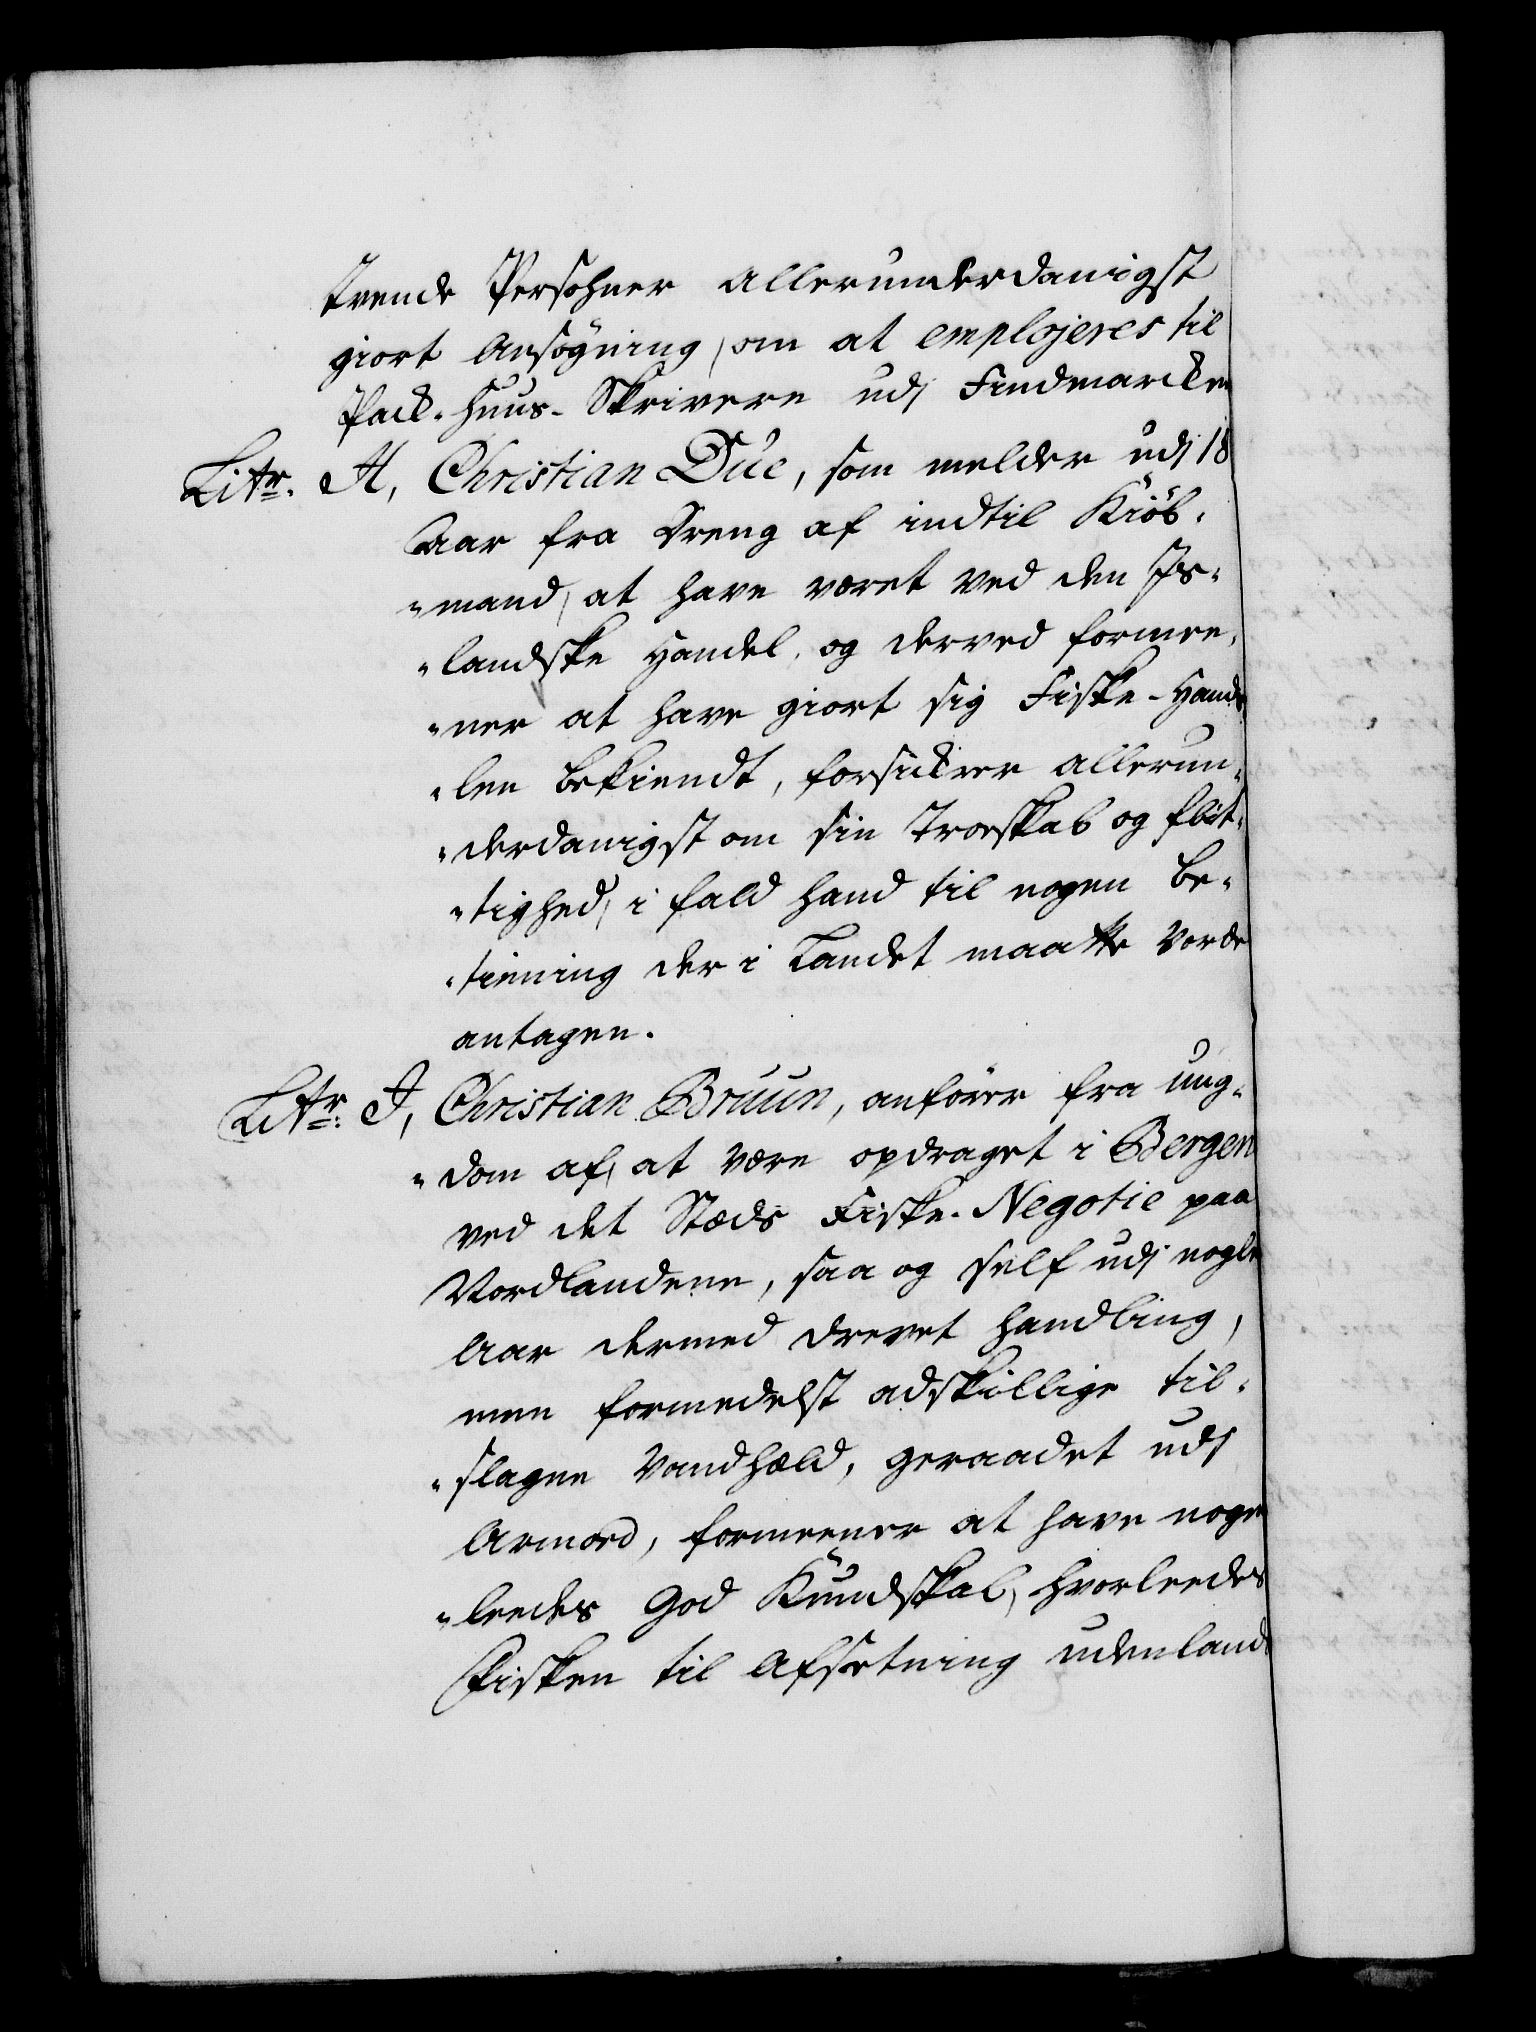 trende Persohner allerunderdanigst
giort Ansøgning, om at emplojeres til
Pack-Huus-Skrivere udj Findmarcken
Litr. H, Christian Due, som melder udj 18
Aar fra Dreng af indtil Kiöb-
-mand, at have været ved den Is-
-landske Handel, og derved formee-
-ner at have giort sig Fiske-Hand
-len bekiendt, forsickrer allerun-
-derdanigst om sin Troeskab og flit-
-tighed, i fald hand til nogen be-
-tiening der i Landet maatte vorde
antagen.
Litr. J, Christian Bruun, anfører fra ung-
-dom af, at være opdraget i Bergen
ved det Stæds Fiske-Negotie paa
Nordlandene, saa og self udj nogle
Aar dermed drevet Handling,
men formedelst adskillige til-
-slagne Vandhæld, geraadet udj
Armod, formeener at have noge
-leedes god Kundskab, hvorleedes
Fisken til Afsetning udenland